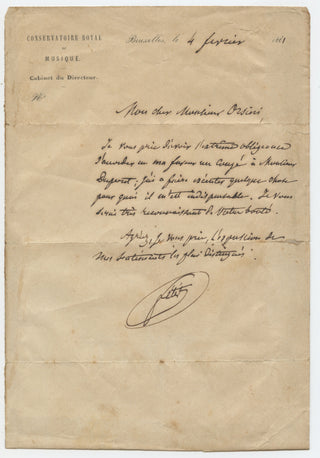 CONSERVATOIRE ROYAL
DE
MUSIQUE.
Cabinet du Directeur.
N°
Bruxelles, le 4 février 1861
Mon cher Monsieur
Je vous prie d'avoir l'extrême obligeance
d'accorder en ma faveur un congé à Monsieur
Dupret; j'ai à faire exécuter quelque chose
pour quoi il m'est indispensable. Je vous
serai très reconnaissant de votre bonté.
Agréez, je vous prie, l'expression de
mes sentiments les plus distingués.
Fétis